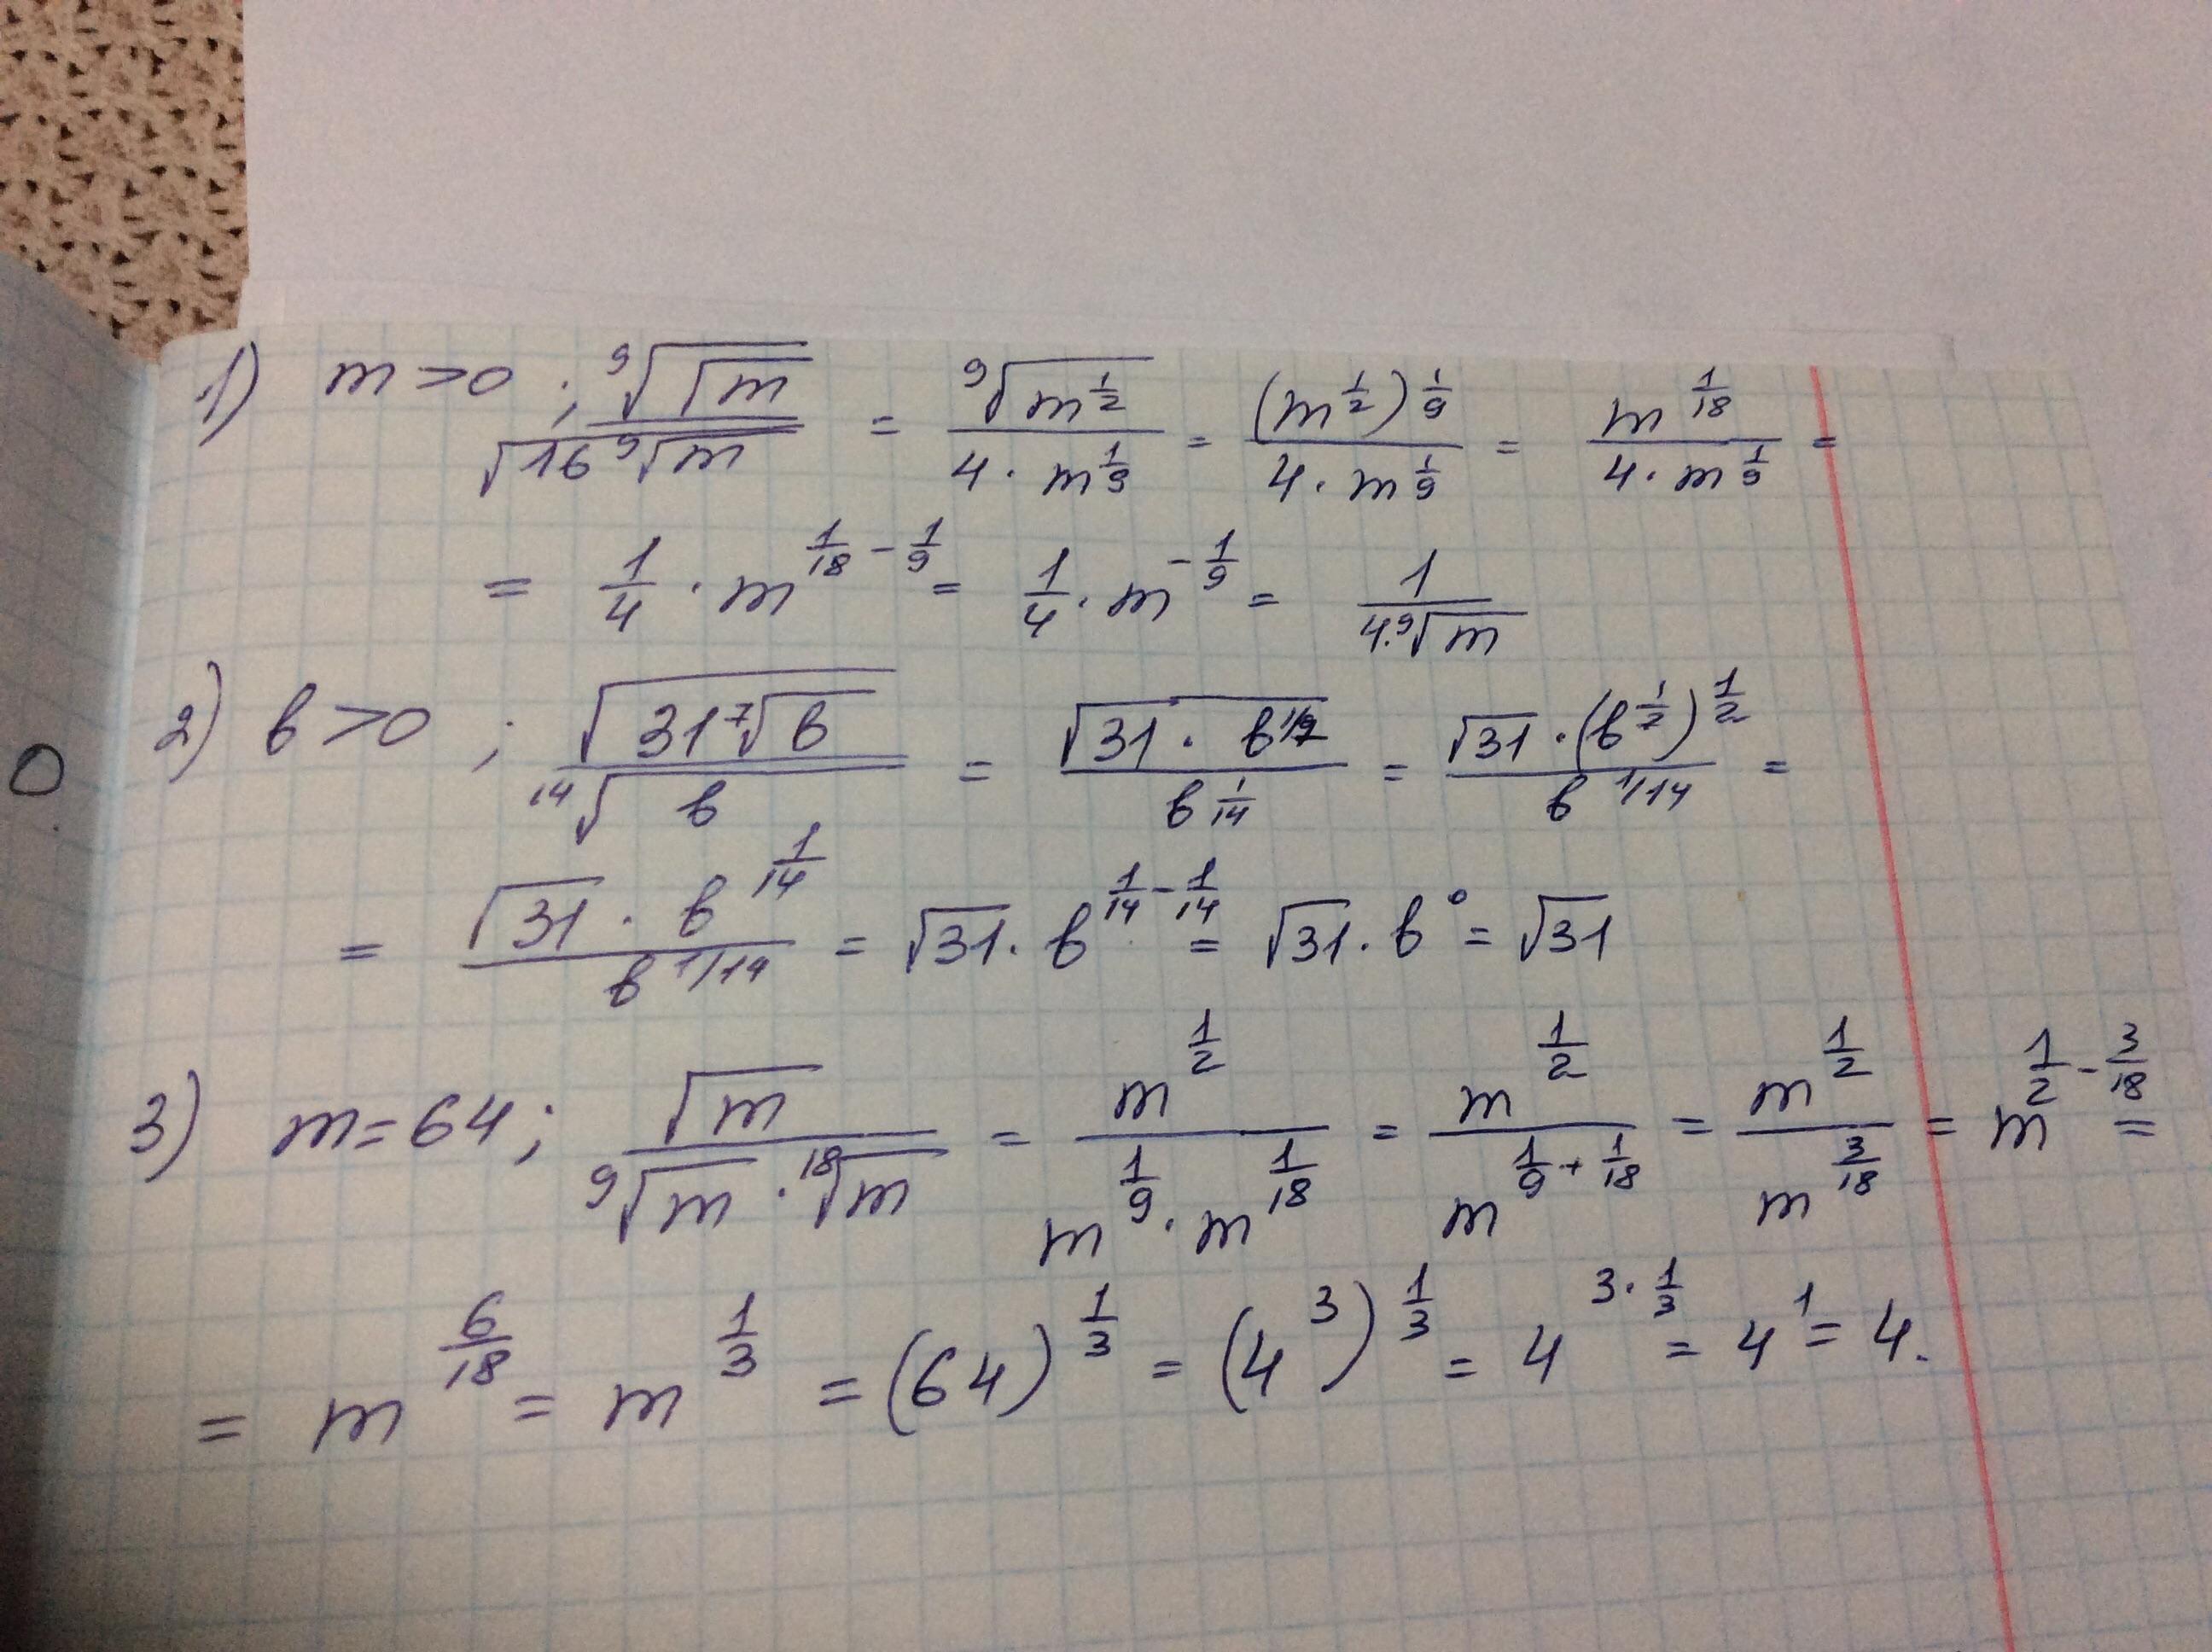 1) m>0 ; ⁹√√m / √16 ⁹√m = ⁹√m^(1/2) / 4·m^(1/9) = (m^(1/2))^(1/9) / 4·m^(1/9) = m^(1/18) / 4·m^(1/9) =
= 1/4 · m^(1/18 - 1/9) = 1/4 · m^(-1/9) = 1 / 4·⁹√m
2) b>0 ; √(31 ⁷√b) / ¹⁴√b = √(31 · b^(1/7)) / b^(1/14) = √31 · (b^(1/7))^(1/2) / b^(1/14) =
= √31 · b^(1/14) / b^(1/14) = √31 · b^(1/14 - 1/14) = √31 · b^0 = √31
3) m=64; √m / ⁹√m · ¹⁸√m = m^(1/2) / m^(1/9) · m^(1/18) = m^(1/2) / m^(1/9 + 1/18) = m^(1/2) / m^(3/18) = m^(1/2 - 3/18) =
= m^(6/18) = m^(1/3) = (64)^(1/3) = (4^3)^(1/3) = 4^(3·1/3) = 4^1 = 4.